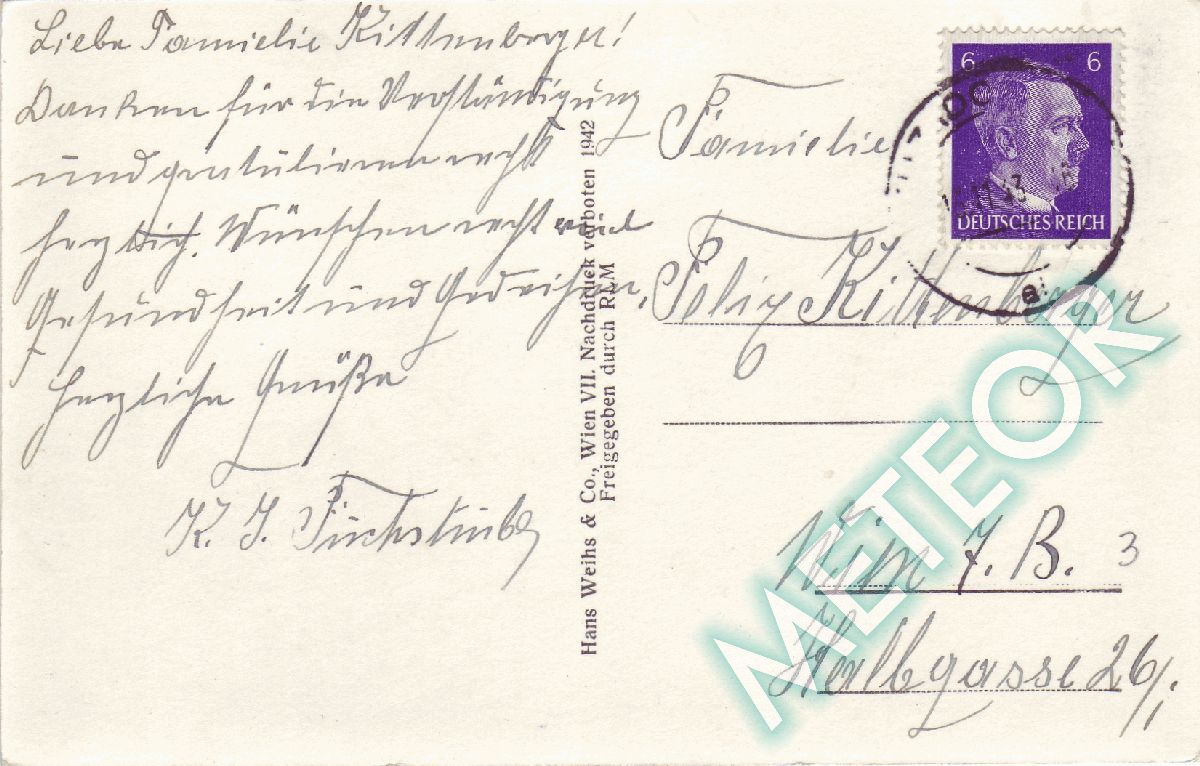 Liebe Familie Kittenberger!
Danken für die Verständigung
und gratulieren recht
herzlich. Wünschen recht viel
Gesundheit und Gedeihen.
Herzliche Grüße
K. J.
Hans Weihs & Co., Wien VII. Nachdruck verboten 1942
Freigegeben durch RLM
6 6
DEUTSCHES REICH
Familie
Felix Kittenberger
Wien 7. B. 3
Halbgasse 26/1.
METEOR